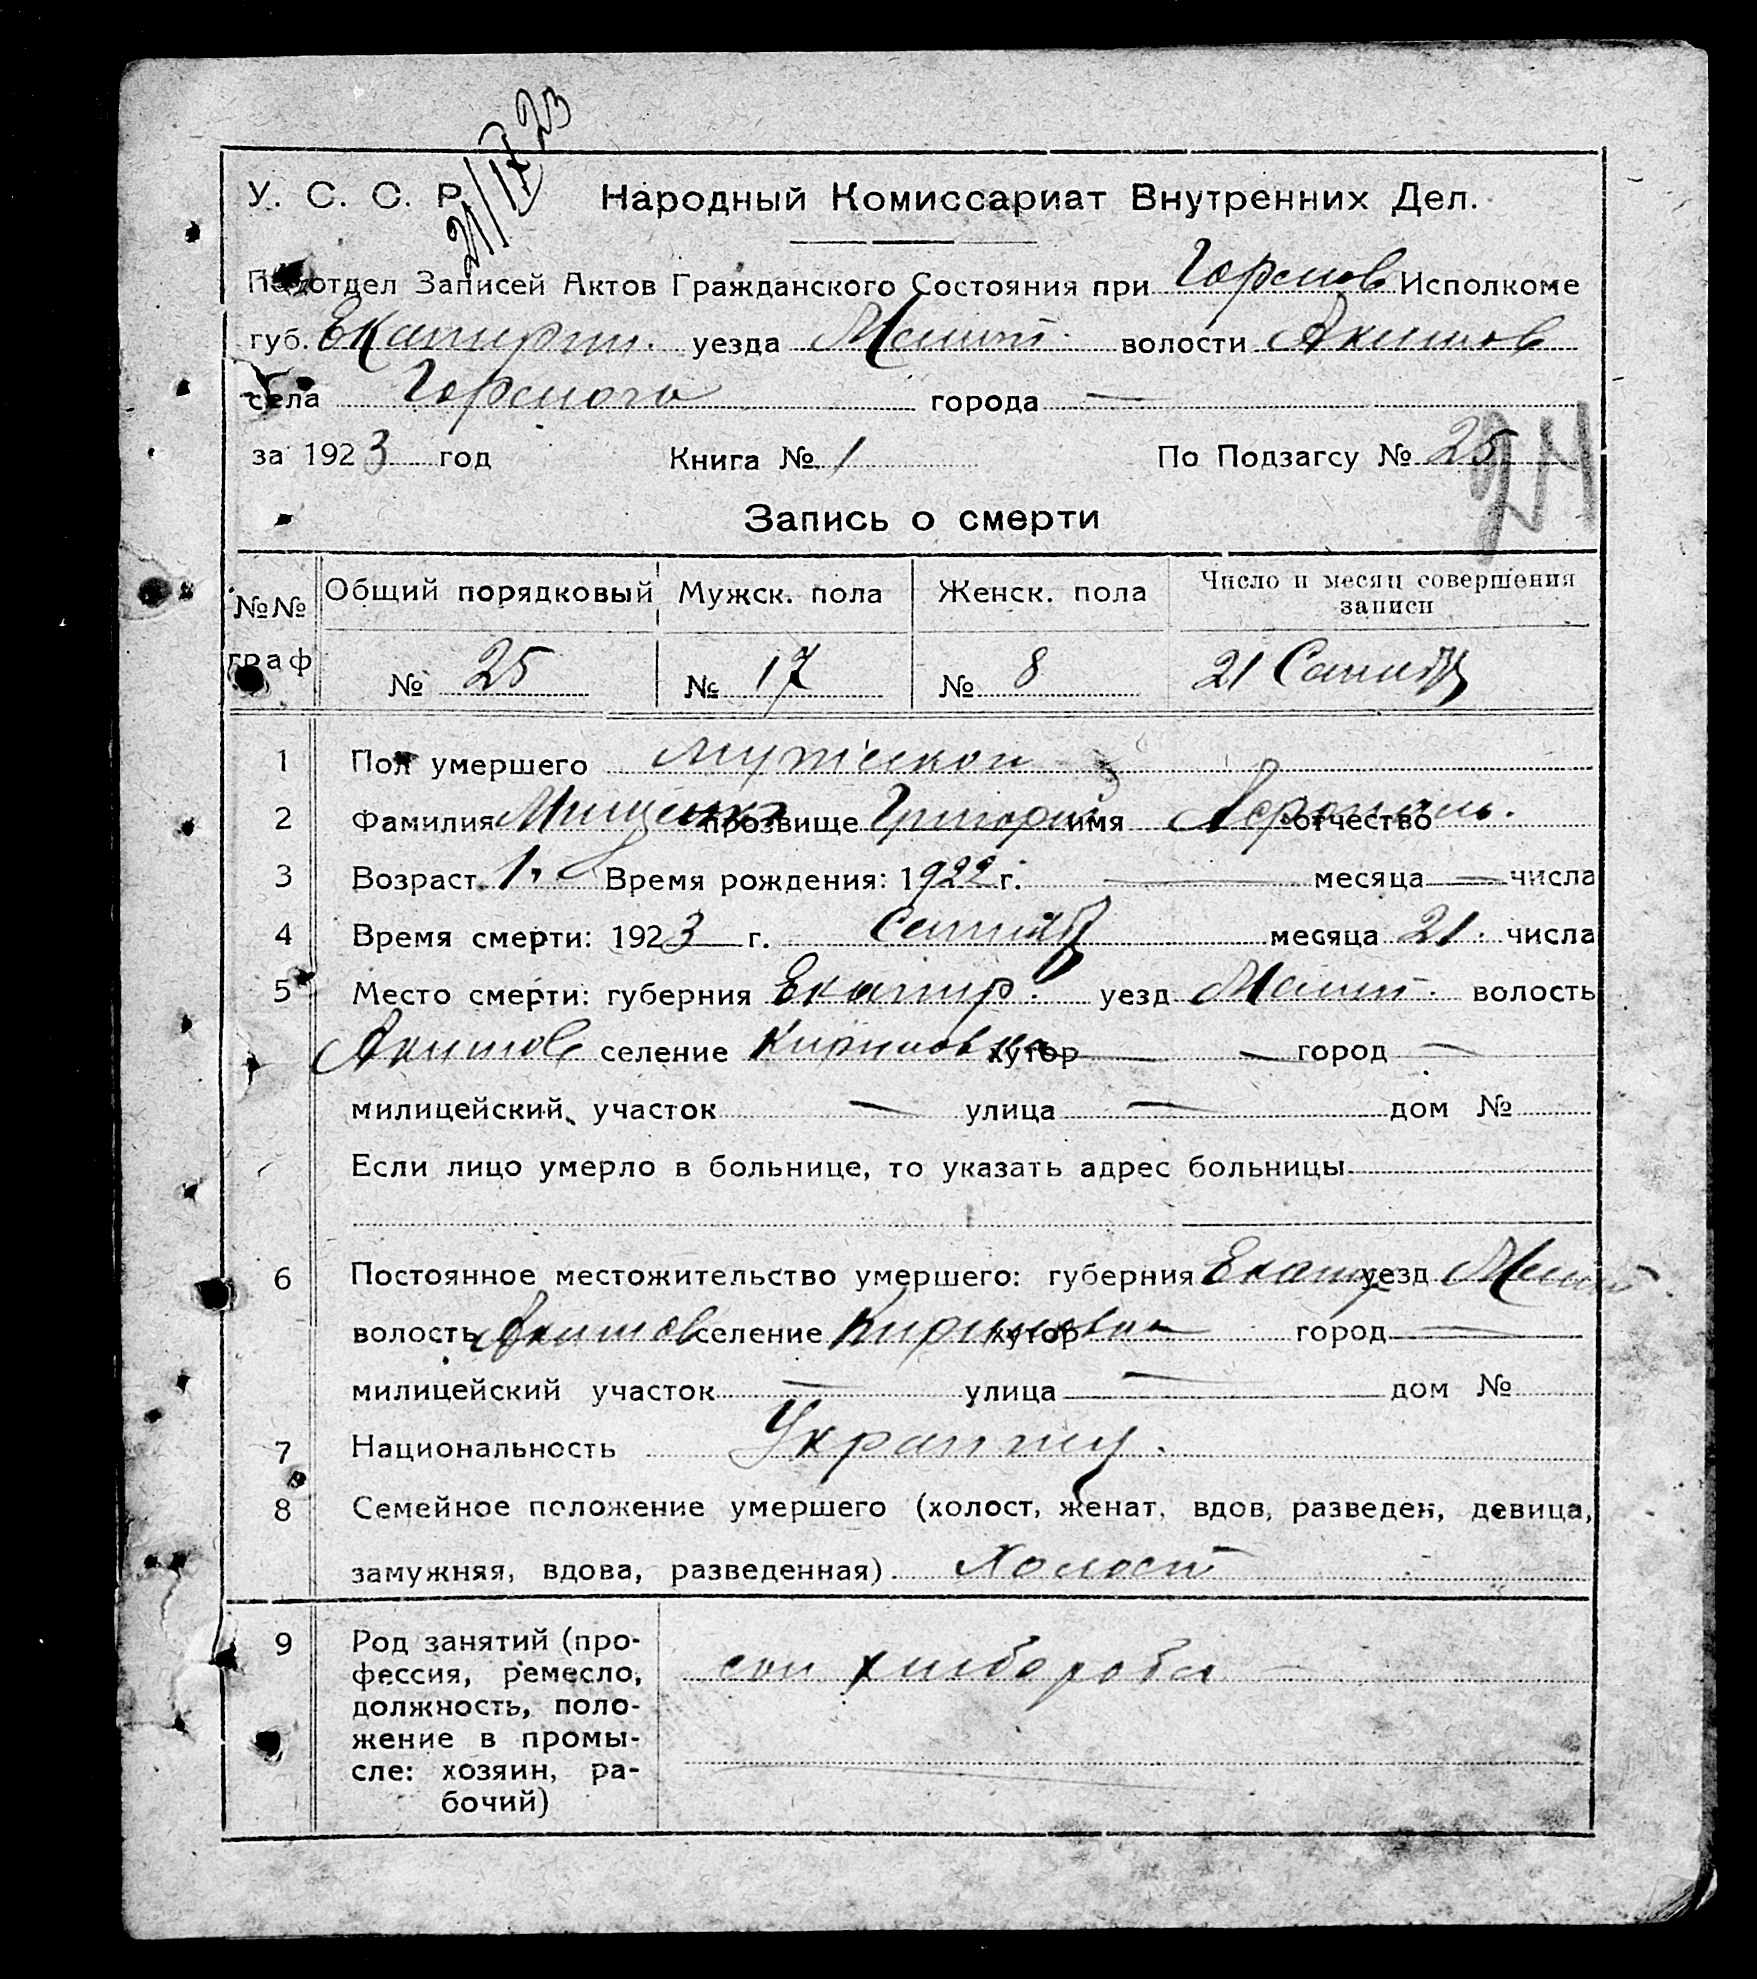 21/IX 23
У. С. С. Р. Народный Комиссариат Внутренних Дел.
Подотдел Записей Актов Гражданского Состояния при Горснов Исполкоме
губ. Екатерин. уезда Мелит. волости Акимов
села города —
за 1923 год Книга № 1 По Подзагсу № 25
24
Запись о смерти
№№ граф
Общий порядковый Мужск. пола Женск. пола Число и месяц совершения записи
№ 25 № 17 № 8 21 Сентяб
1 Пол умершего мужской
2 Фамилия Мищенко прозвище Григорий имя отчество
3 Возраст 1 г. Время рождения: 1922 г. — месяца — числа
4 Время смерти: 1923 г. Сентяб месяца 21 числа
5 Место смерти: губерния Екатер. уезд Мелит. волость
Акимов селение Кириловка хутор — город —
милицейский участок — улица — дом №
Если лицо умерло в больнице, то указать адрес больницы
6 Постоянное местожительство умершего: губерния Екатер уезд Мелит
волость Акимов селение Кириловка хутор город —
милицейский участок — улица — дом №
7 Национальность
8 Семейное положение умершего (холост, женат, вдов, разведен, девица,
замужняя, вдова, разведенная) Холост
9 Род занятий (про-
фессия, ремесло, сын хлебороба
должность, поло-
жение в промы-
сле: хозяин, ра-
бочий)